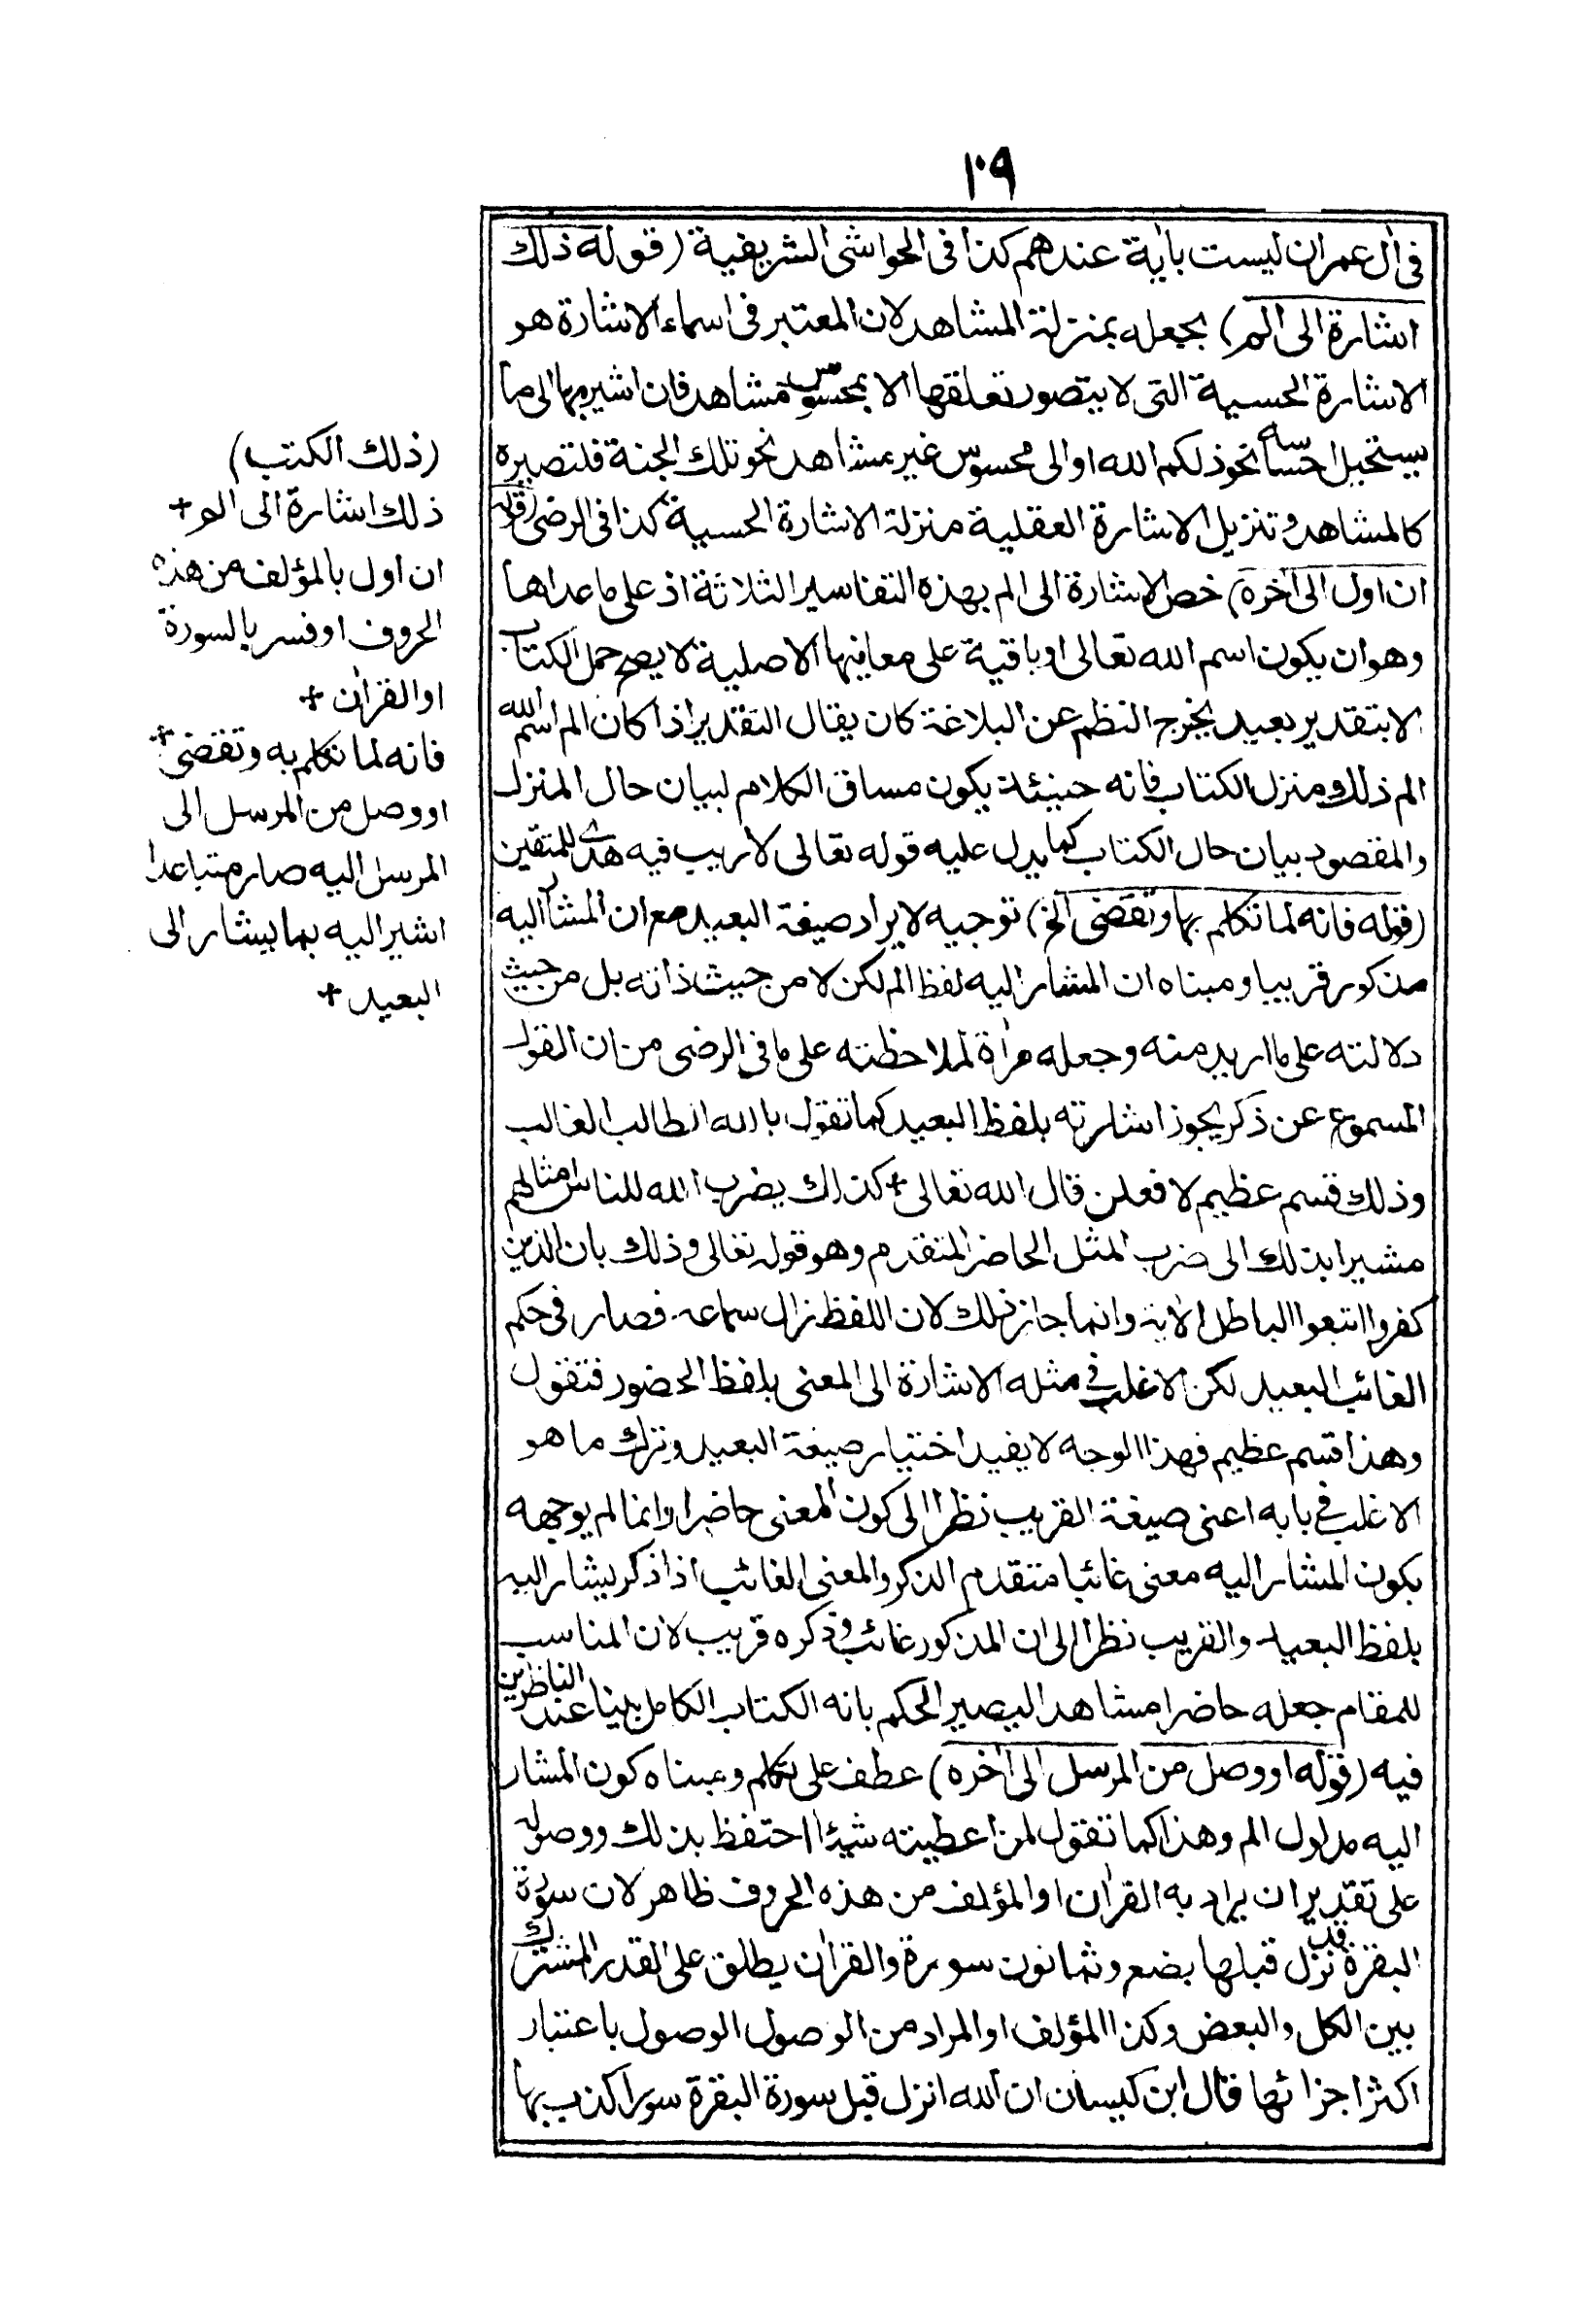 ١٠٩
في اٰل عمران ليست باٰية عندهم كذا في الحواشي الشريفية (قوله ذلك
اشارة الى الم) بجعله بمنزلة المشاهد لان المعتبر في اسماء الاشارة هو
الاشارة الحسية التي لا يتصور تعلقها الا بمحسوس مشاهد فان اشير بها الى ما
يستحيل احساسه نحو ذلكم الله او الى محسوس غير مشاهد نحو تلك الجنة فلتصييره
كالمشاهد و تنزيل الاشارة العقلية منزلة الاشارة الحسية كذا في الرضي (قوله
ان اول الى اٰخره) خص الاشارة الى الم بهذه التفاسير الثلاثة اذ على ما عداها
وهو ان يكون اسم الله تعالى او باقية على معانيها الاصلية لا يصح حمل الكتاب
الا بتقدير بعيد يخرج النظم عن البلاغة كان يقال التقدير اذا كان الم اسم الله
الم ذلك ومنزل الكتاب فانه حينئذ يكون مساق الكلام لبيان حال المنزل
والمقصود بيان حال الكتاب كما يدل عليه قوله تعالى لا ريب فيه هدى للمتقين
(قوله فانه لما تكلم بها وتقضى الخ) توجيه لايراد صيغة البعيد مع ان المشار اليه
مذكور قريبا ومبناه ان المشار اليه لفظ الم لكن لا من حيث ذاته بل من حيث
دلالته على ما اريد منه وجعله مراٰة لملاحظته على ما في الرضى من ان القول
المسموع عن ذكر يجوز اشارته بلفظ البعيد كما تقول بالله الطالب الغالب
وذلك قسم عظيم لا فعلن قال الله تعالى + كذلك يضرب الله للناس امثالهم
مشيرا بذلك الى ضرب المثل الحاضر المتقدم وهو قوله تعالى وذلك بان الذين
كفروا اتبعوا الباطل الاٰية وانما جاز ذلك لان اللفظ زال سماعه فصار في حكم
الغائب البعيد لكن الاغلب في مثله الاشارة الى المعنى بلفظ الحضور فتقول
وهذا قسم عظيم فهذا الوجه لا يفيد اختيار صيغة البعيد وترك ما هو
الاغلب في بابه اعني صيغة القريب نظرا الى كون المعنى حاضرا وانما لم يوجهه
بكون المشار اليه معنى غائبا متقدم الذكر والمعنى الغائب اذا ذكر يشار اليه
بلفظ البعيد والقريب نظرا الى ان المذكور غائب و ذكره قريب لان المناسب
للمقام جعله حاضرا مشاهدا ليصير الحكم بانه الكتاب الكامل بينا عند الناظرين
فيه (قوله او وصل من المرسل الى اٰخره) عطف على تكلم ومبناه كون المشار
اليه مدلول الم وهذا كما تقول لمن اعطيته شيئا احتفظ بذلك ووصوله
على تقدير ان يراد به القراٰن او المؤلف من هذه الحروف ظاهر لان سورة
البقرة قد نزل قبلها بضع وثمانون سورة والقراٰن يطلق على القدر المشترك
بين الكل والبعض وكذا المؤلف او المراد من الوصول الوصول باعتبار
اكثر اجزائها قال ابن كيسان ان الله انزل قبل سورة البقرة سورا كذب بها
(ذلك الكتب)
ذلك اشارة الى الم +
ان اول بالمؤلف من هذه
الحروف او فسر بالسورة
او القراٰن +
فانه لما تكلم به و تقضى +
او وصل من المرسل الى
المرسل اليه صار متباعدا
اشير اليه بما يشار الى
البعيد +